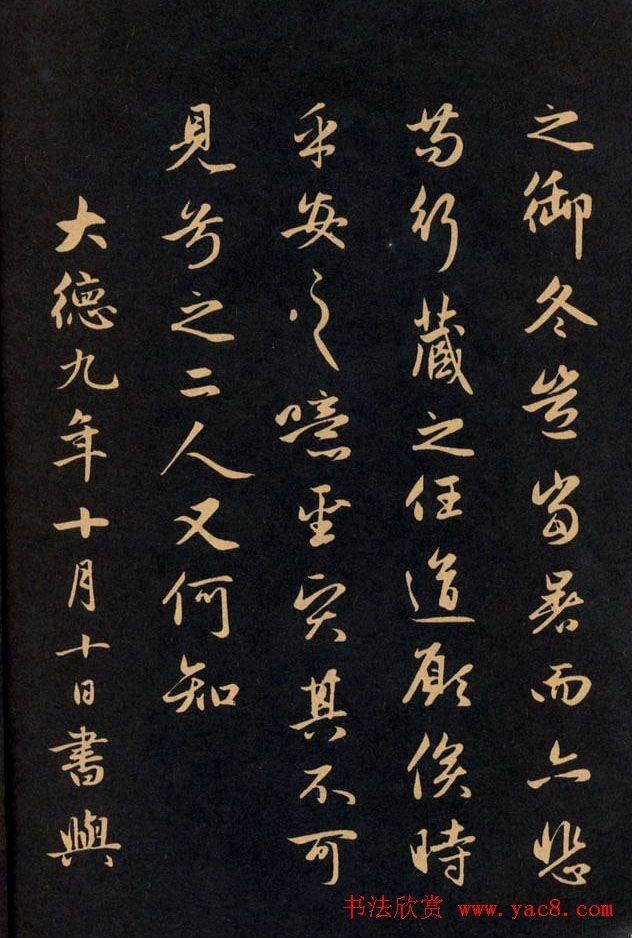 之御冬豈當暑而亦悲
苟行藏之任道願俟時
乎安之噫聖賢其不可
見兮之二人又何知
大德九年十月十日書與
书法欣赏 www.yac8.com